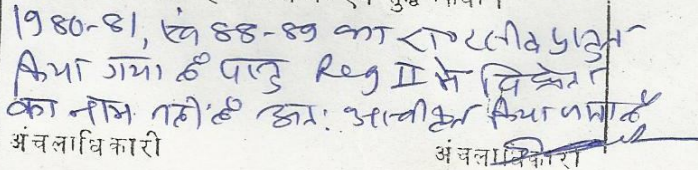 1980-81, एवं 88-89 का रा० रसीद प्रस्तुत
किया गया है परन्तु Reg II में विक्रेता
का नाम नहीं है अतः अस्वीकृत किया जाता है
अंचलाधिकारी अंचलाधिकारी